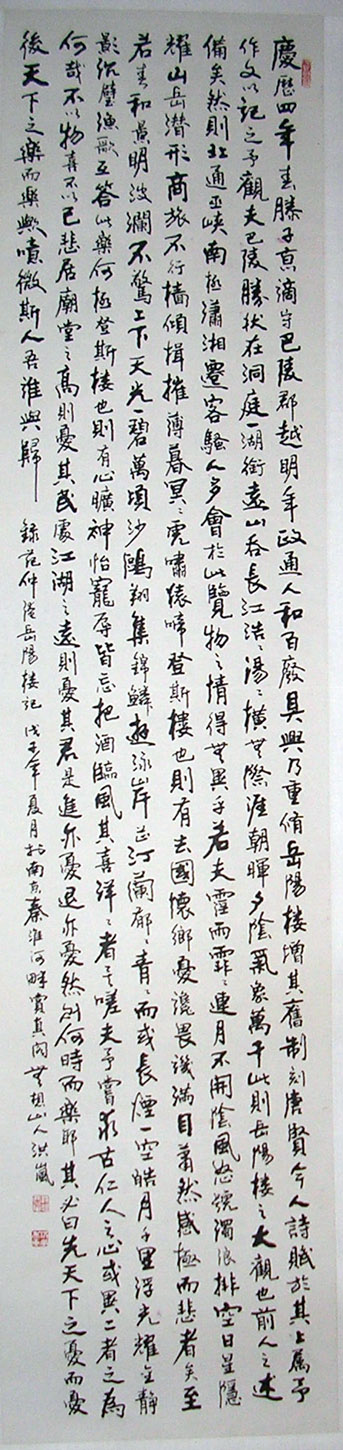 慶歷四年春滕子京謫守巴陵郡越明年政通人和百廢具興乃重脩岳陽樓增其舊制刻唐賢今人詩賦於其上屬予
作文以記之予觀夫巴陵勝狀在洞庭一湖銜遠山吞長江浩〻湯〻橫無際涯朝暉夕陰氣象萬千此則岳陽樓之大觀也前人之述
備矣然則北通巫峽南極瀟湘遷客騷人多會於此覽物之情得無異乎若夫霪雨霏〻連月不開陰風怒號濁浪排空日星隱
耀山岳潛形商旅不行檣傾楫摧薄暮冥〻虎嘯猿啼登斯樓也則有去國懷鄉憂讒畏譏滿目蕭然感極而悲者矣至
若春和景明波瀾不驚上下天光一碧萬頃沙鷗翔集錦鱗遊泳岸芷汀蘭郁〻青〻而或長煙一空皓月千里浮光耀金靜
影沉璧漁歌互答此樂何極登斯樓也則有心曠神怡寵辱皆忘把酒臨風其喜洋〻者矣嗟夫予嘗求古仁人之心或異二者之為
何哉不以物喜不以己悲居廟堂之高則憂其民處江湖之遠則憂其君是進亦憂退亦憂然則何時而樂耶其必曰先天下之憂而憂
後天下之樂而樂與噫微斯人吾誰與歸 錄范仲淹岳陽樓記 戊子年夏月於南京秦淮河畔賞真閣無想山人洪嵐